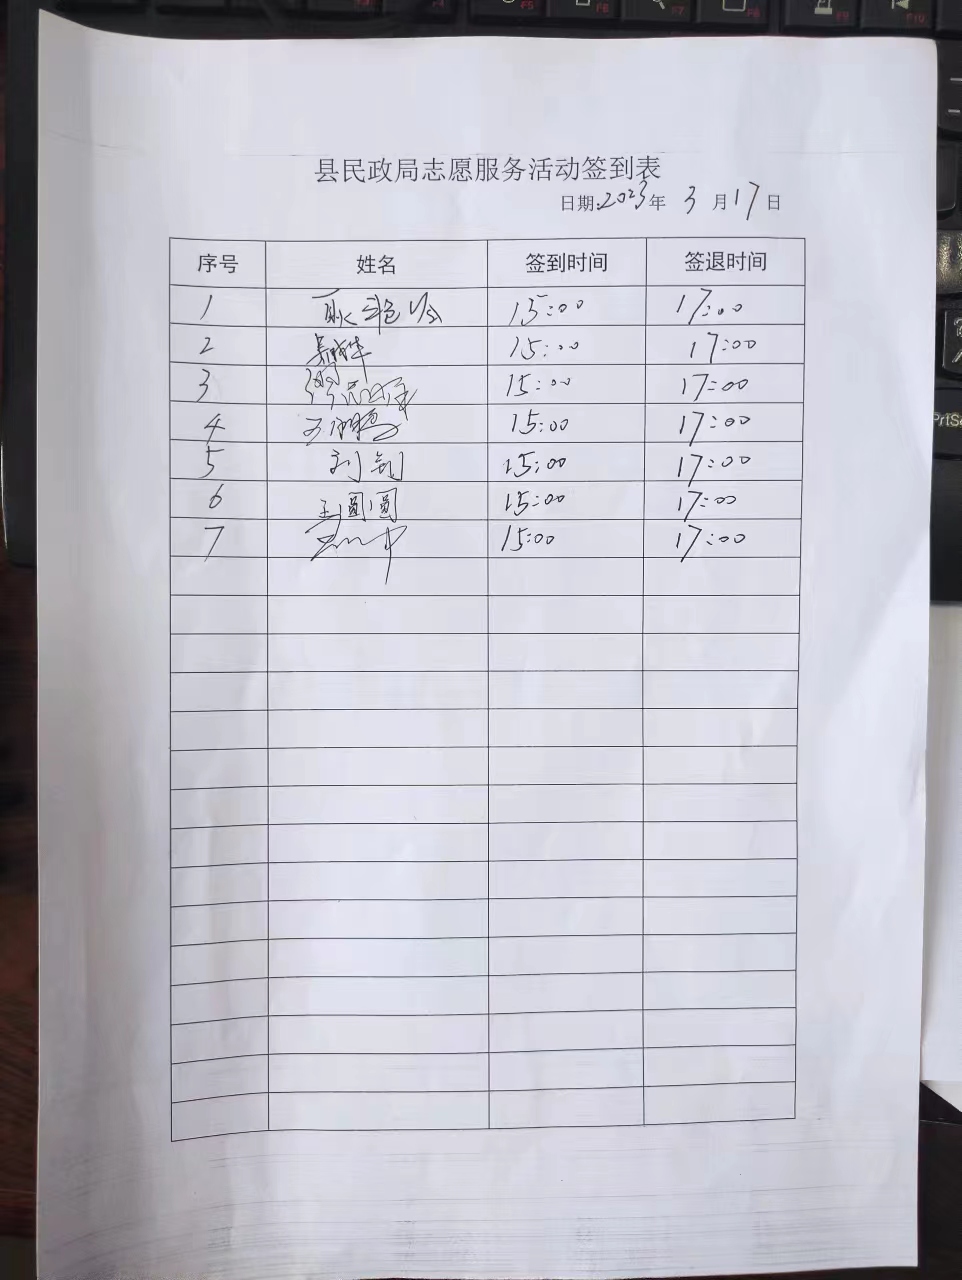 县民政局志愿服务活动签到表
日期:2023年 3 月17日
序号 姓名 签到时间 签退时间
1 15:00 17:00
2 15:00 17:00
3 15:00 17:00
4 15:00 17:00
5 刘剑 15:00 17:00
6 王圆圆 15:00 17:00
7 15:00 17:00